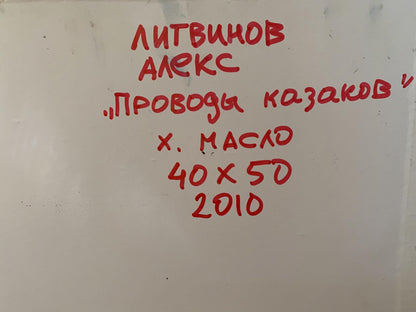 ЛИТВИНОВ
АЛЕКС
„ПРОВОДЫ КАЗАКОВ"
Х. МАСЛО
40 X 50
2010